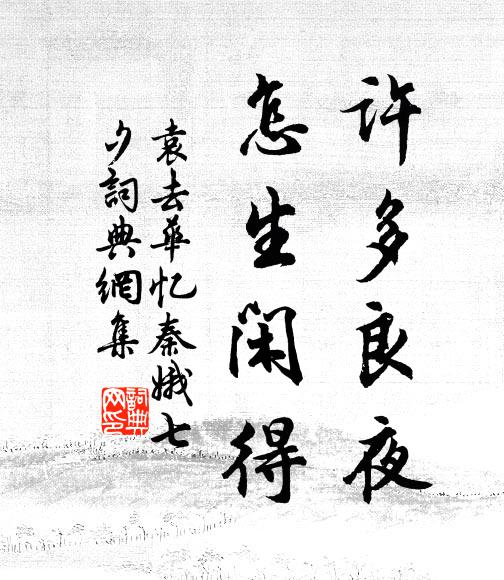 许多良夜
怎生闲得
袁去华忆秦娥七
夕词典网集
词典网印